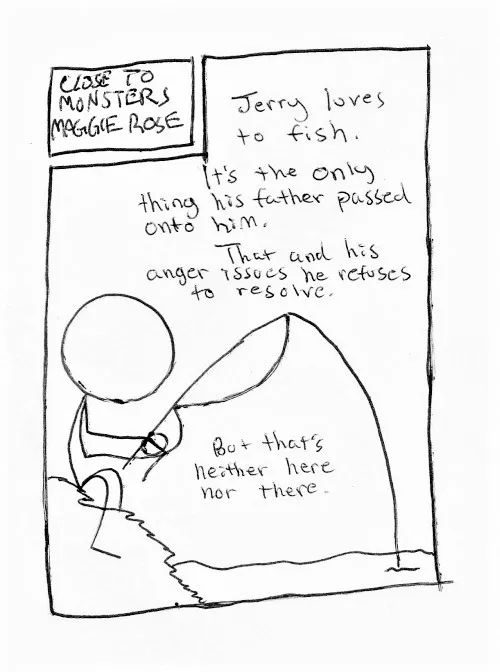 CLOSE TO
MONSTERS
MAGGIE ROSE
Jerry loves
to fish.
It's the only
thing his father passed
onto him.
That and his
anger issues he refuses
to resolve.
But that's
neither here
nor there.